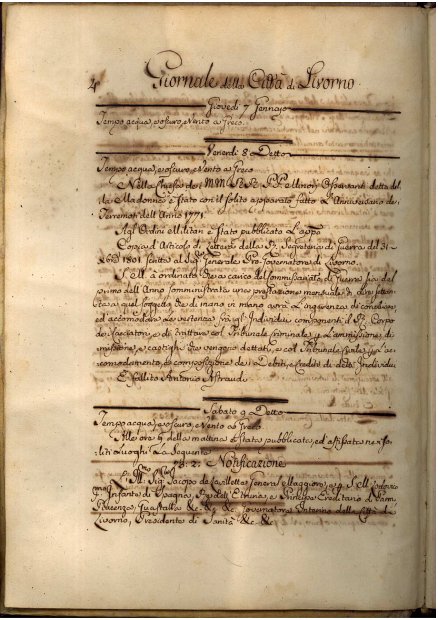 4 Giornale della Città di Livorno
Giovedì 7 Gennajo
Tempo acqua, e oscuro, e Vento a Greco
Venerdì 8 Detto
Tempo acqua, e oscuro, e Vento a Greco
Nella Chiesa dei MM. Osservanti detta del
la Madonna è stato con il solito apparato fatto L'Anniversario de
Terremoti dell'Anno 1771.
Agl'Ordini Militari è stato pubblicato L'app.o
Copia di Articolo di Lettera della Segreteria di Guerra del 31
1801 scritta al Generale Governatore di Livorno.
S. M. à ordinato che a carico del Commissariato di Guerra sia dal
primo dell'Anno somministrata una prestazione mensuale di
a quel soggetto che di mano in mano avrà L'
ed accomodare le vertenze fra gl'Individui componenti il Corpo
dei Cacciatori, e di trattare col Tribunale Criminale, La
missione, e castighi che vengono dettati, e col Tribunale Civile, per l'ac
comodamento, e composizione dei Debiti, e Crediti di detti Individui
È fallito Antonio Astraudi
Sabato 9 Detto
Tempo acqua, e oscuro, e Vento a Greco
Alle ore 9 della mattina è stata pubblicata, ed affissata ne so-
liti Luoghi La seguente
Notificazione
Sig. Jacopo de Lavillette Maggiore, di S. M. Lodovico
Infante di Spagna, Re dell'Etruria, e Principe Ereditario di Parma
Piacenza, Guastalla &c. &c. &c. Governatore Interino della Città di
Livorno, Presidente di Sanità &c. &c.